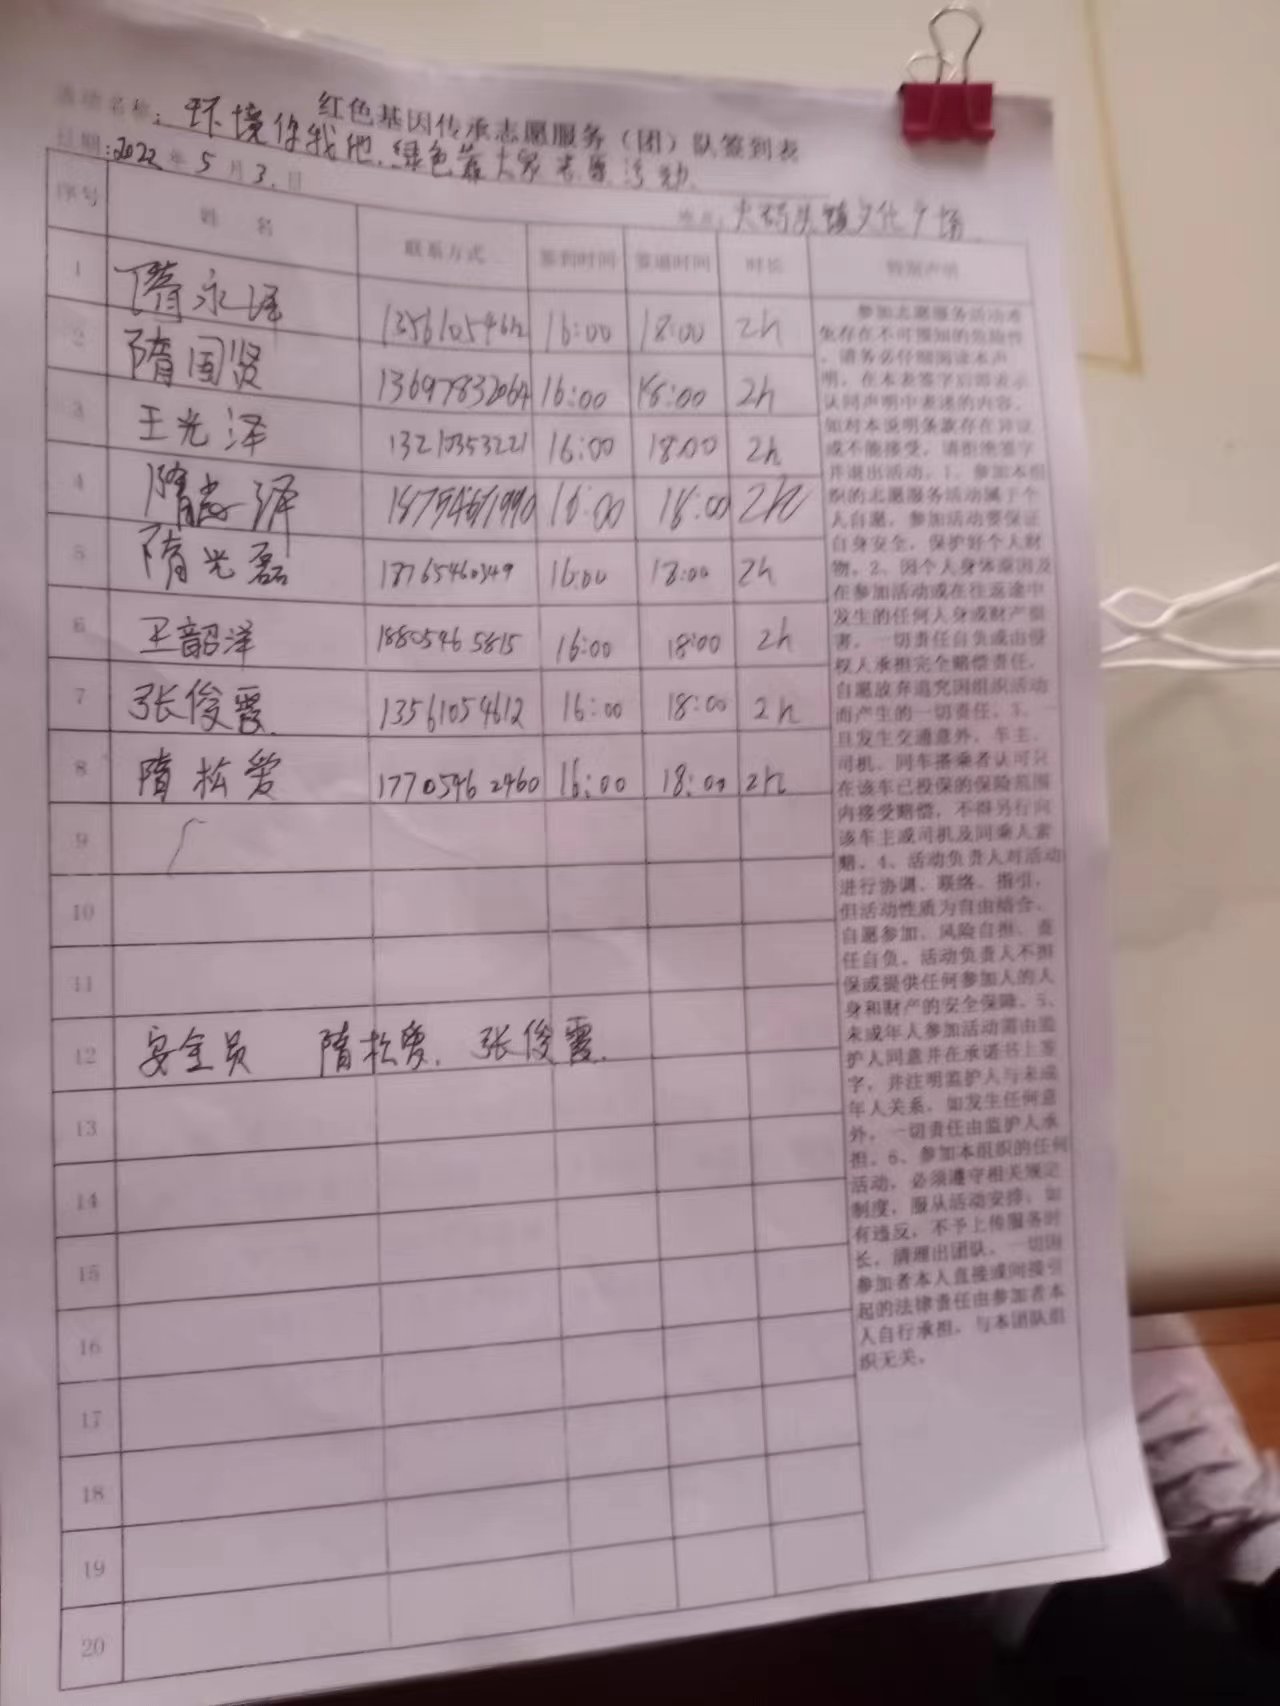 红色基因传承志愿服务（团）队签到表
活动名称：环境你我他,绿色靠大家志愿活动
日期:2022年5月3日
地点:大码头镇文化广场
序号 姓名 联系方式 签到时间 签退时间 时长 特别声明
1 隋永泽 13561054612 16:00 18:00 2h
2 隋国贤 13697832064 16:00 18:00 2h
3 王光泽 13210353221 16:00 18:00 2h
4 隋 泽 18754671990 16:00 18:00 2h
5 隋光磊 18765460349 16:00 18:00 2h
6 王韶泽 18805465815 16:00 18:00 2h
7 张俊霞 13561054612 16:00 18:00 2h
8 隋松爱 17705462460 16:00 18:00 2h
9
10
11
12 安全员 隋松爱. 张俊霞.
13
14
15
16
17
18
19
20
参加志愿服务活动难
免存在不可预知的危险性
，请务必仔细阅读本声
明，在本表签字后即表示
认同声明中表述的内容。
如对本说明条款存在异议
或不能接受，请拒绝签字
并退出活动。1、参加本组
织的志愿服务活动属于个
人自愿，参加活动要保证
自身安全，保护好个人财
物。2、因个人身体原因及
在参加活动或在往返途中
发生的任何人身或财产损
害，一切责任自负或由侵
权人承担完全赔偿责任，
自愿放弃追究因组织活动
而产生的一切责任。3、一
旦发生交通意外，车主、
司机、同车搭乘者认可只
在该车已投保的保险范围
内接受赔偿，不得另行向
该车主或司机及同乘人索
赔。4、活动负责人对活动
进行协调、联络、指引，
但活动性质为自由结合、
自愿参加、风险自担、责
任自负。活动负责人不担
保或提供任何参加人的人
身和财产的安全保障。5、
未成年人参加活动需由监
护人同意并在承诺书上签
字，并注明监护人与未成
年人关系，如发生任何意
外，一切责任由监护人承
担。6、参加本组织的任何
活动，必须遵守相关规定
制度，服从活动安排，如
有违反，不予上传服务时
长，清理出团队。一切因
参加者本人直接或间接引
起的法律责任由参加者本
人自行承担，与本团队组
织无关。